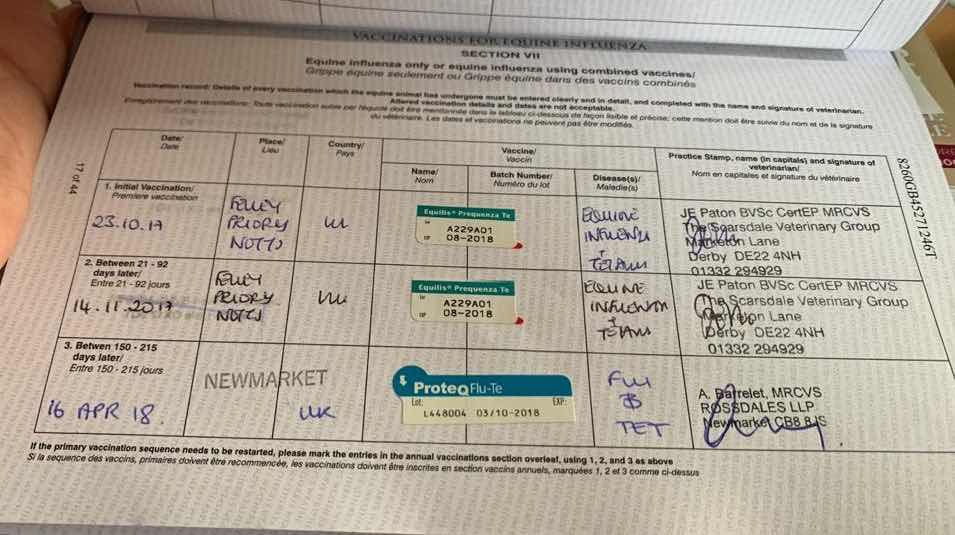 VACCINATIONS FOR EQUINE INFLUENZA
SECTION VII
Equine influenza only or equine influenza using combined vaccines/
Grippe équine seulement ou Grippe équine dans des vaccins combinés
Vaccination record: Details of every vaccination which the equine animal has undergone must be entered clearly and in detail, and completed with the name and signature of veterinarian.
Altered vaccination details and dates are not acceptable.
Enregistrement des vaccinations: Toute vaccination subie par l'équidé doit être mentionnée dans le tableau ci-dessous de façon lisible et précise; cette mention doit être suivie du nom et de la signature
du vétérinaire. Les dates et vaccinations ne peuvent pas être modifiés.
17 of 44
8260GB45271246T
Date/
Date
Place/
Lieu
Country/
Pays
Vaccine/
Vaccin
Name/
Nom
Batch Number/
Numéro du lot
Disease(s)/
Maladie(s)
Practice Stamp, name (in capitals) and signature of
veterinarian/
Nom en capitales et signature du vétérinaire
1. Initial Vaccination/
Première vaccination
23.10.17
FELLEY
PRIORY
NOTTS
UK
Equilis® Prequenza Te
A229A01
08-2018
EQUINE
INFLUENZA
+
TETANUS
JE Paton BVSc CertEP MRCVS
The Scarsdale Veterinary Group
Markeaton Lane
Derby DE22 4NH
01332 294929
2. Between 21 - 92
days later/
Entre 21 - 92 jours
14.11.2017
FELLEY
PRIORY
NOTTS
UK
Equilis® Prequenza Te
A229A01
08-2018
EQUINE
INFLUENZA
+
TETANUS
JE Paton BVSc CertEP MRCVS
The Scarsdale Veterinary Group
Markeaton Lane
Derby DE22 4NH
01332 294929
3. Betwen 150 - 215
days later/
Entre 150 - 215 jours
16 APR 18.
NEWMARKET
UK
ProteqFlu-Te
Lot: EXP:
L448004 03/10-2018
FLU
TET
A. Barrelet, MRCVS
ROSSDALES LLP
Newmarket CB8 8JS
If the primary vaccination sequence needs to be restarted, please mark the entries in the annual vaccinations section overleaf, using 1, 2, and 3 as above
Si la sequence des vaccins, primaires doivent être recommencée, les vaccinations doivent être inscrites en section vaccins annuels, marquées 1, 2 et 3 comme ci-dessus